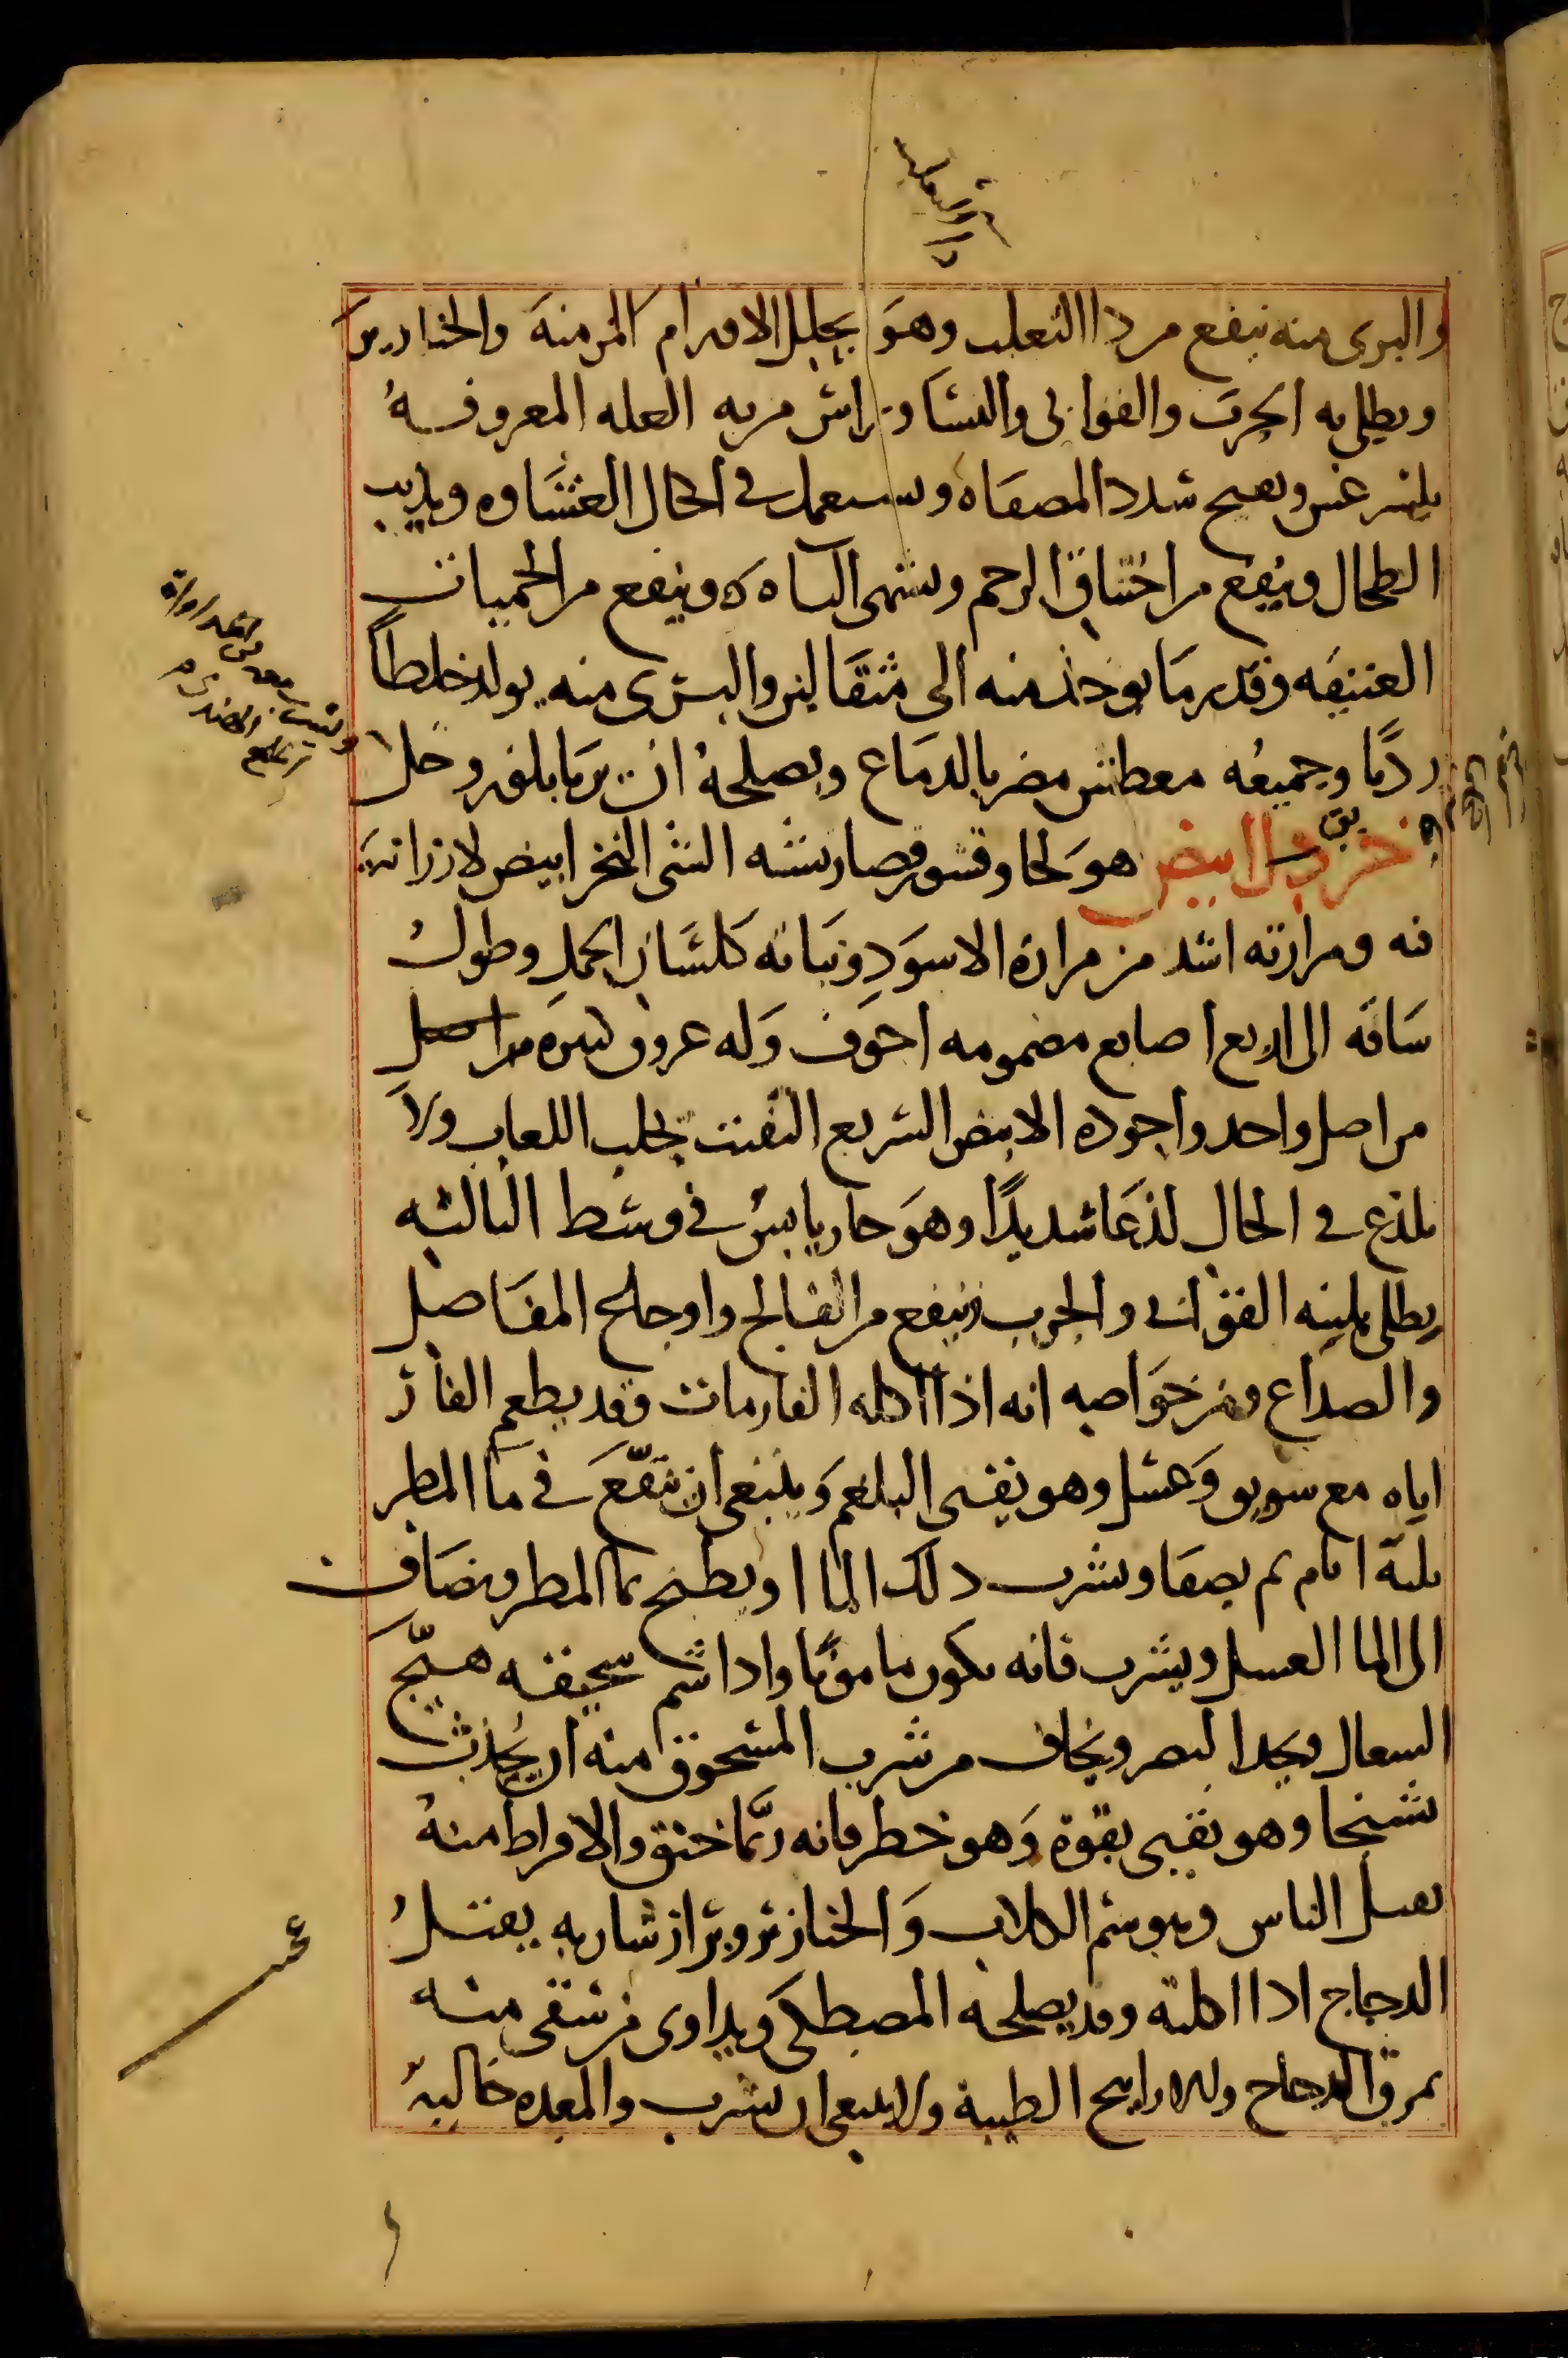 دا الثعلب
والبرى منه ينفع من دا الثعلب وهو يحلل الاورام المزمنة والخنازير
ويطلى به الجرب والقوابى والنسا وتراش من به العله المعروفة
بليثرغس ويفتح سدد المصفاه ويستعمل فى اكحال الغشاوه ويذيب
الطحال وينفع من اختناق الرحم ويشهى الباه وينفع من الحميات
العتيقه وقدر ما يوخذ منه الى مثقالين والبرى منه يولد خلطاً
رديًا وجميعه معطش مضر بالدماغ ويصلحه ان يربا بلوز وخل
خربق ابيض هو لحا وقشور قصار يشبه الشى النخر ابيض لا رزانة
فيه ومرارته اشد من مرارة الاسود ونباته كلسان الحمل وطول
ساقه الى اربع اصابع مضمومه اجوف وله عروق كثيره من اصل
من اصل واحد واجوده الابيض السريع التفتت يجلب اللعاب ولا
يلذع فى الحال لذعا شديدًا وهو حار يابس فى وسط الثالثه
يطلى بلبنه القوابى والجرب وينفع من الفالج واوجاع المفاصل
والصداع ومن خواصه انه اذا اكله الفار مات وقد يطعم الفار
اياه مع سويق وعسل وهو يقيى البلغم وينبغى ان ينقع فى ما المطر
ثلثة ايام ثم يصفا ويشرب ذلك الما او يطبخ بما المطر ويضاف
الى الما العسل ويشرب فانه يكون مامونًا واذا شم سحيقه هيّج
السعال ويحد البصر ويخاف من شرب المسحوق منه ان يحدث
تشنجا وهو يقيى بقوة وهو خطر فانه ربّما خنق والافراط منه
يقتل الناس وهو سم الكلاب والخنازير وبراز شاربه يقتل
الدجاج اذا اكلته وقد يصلحه المصطكى ويداوى من سقى منه
بمرق الدجاج والاراييح الطيبة ولا ينبغى ان يشرب والمعده خالية